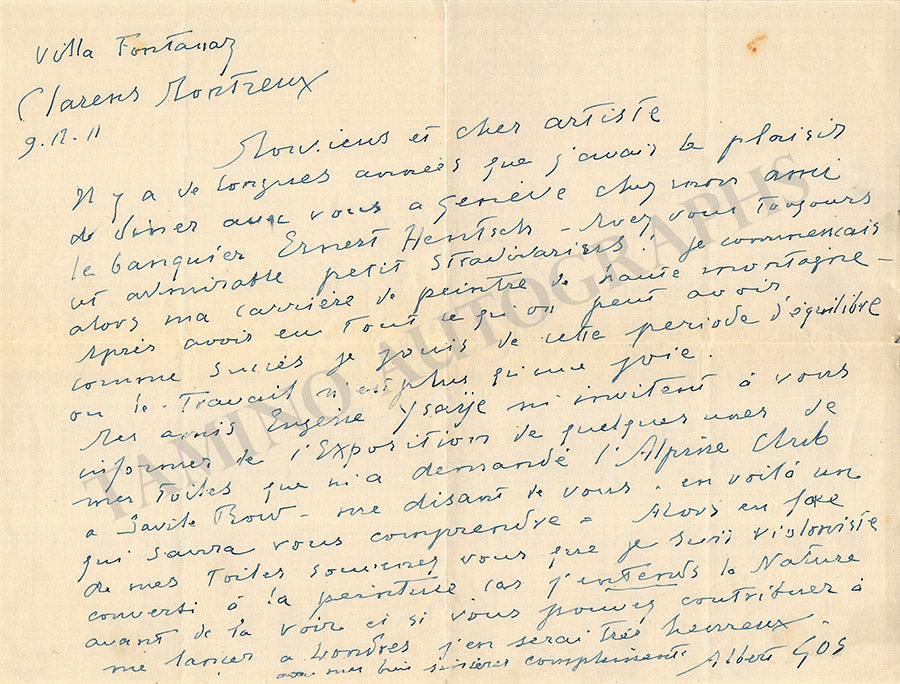 Villa Fontanaz
Clarens Montreux
9.12.11
Monsieur et cher artiste
Il y a de longues années que j'avais le plaisir
de diner avec vous a Genève chez mon ami
le banquier Ernest Hentsch - Avez vous toujours
cet admirable petit Stradivarius! Je commencais
alors ma carrière de peintre de haute montagne -
Après avoir eu tout ce qu'on peut avoir
comme succès je jouis de cette periode d'équilibre
ou le travail n'est plus qu'une joie.
Mes amis Eugène Ysaÿe m'invitent à vous
informer de l'Exposition de quelques unes de
mes toiles que m'a demandé l'Alpine Club
a Savile Row - me disant de vous - en voilà un
qui saura vous comprendre = Alors en face
de mes toiles souvenez vous que je suis violoniste
converti à la peinture car j'entends la Nature
avant de la voir et si vous pouvez contribuer à
me lancer a Londres j'en serai très heureux -
avec mes bien sincères compliments Albert GOS
TAMINO AUTOGRAPHS